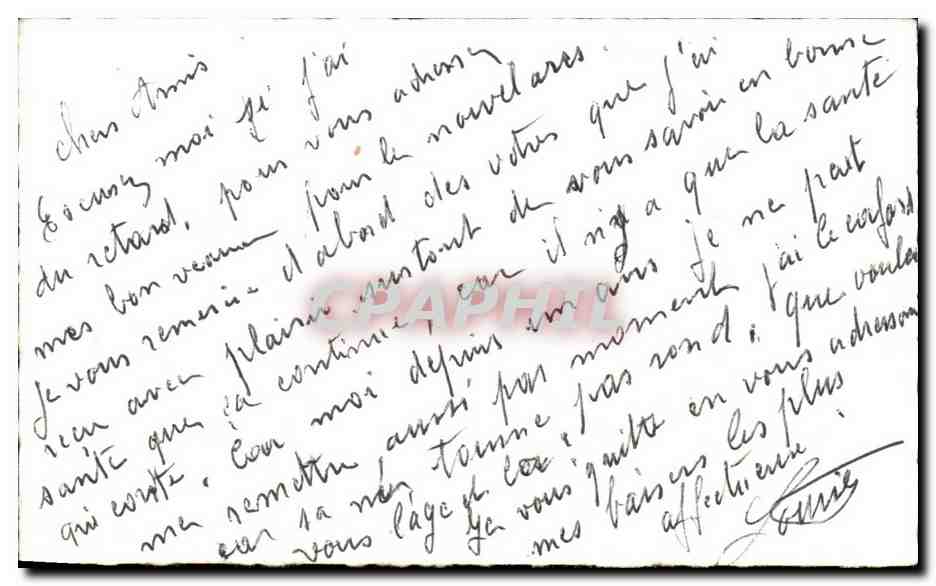 chers Amis
Excusez moi si j'ai
du retard, pour vous adresser
mes bon veaux pour la nouvelares.
Je vous remercie d'abord des votres que j'ai
reçu avec plaisir surtout de vous savoir en bonne
santé que ça continue, car il n'y a que la santé
qui conte. Car moi depuis un ans je ne peut
me remettre aussi par moment j'ai le cafard
car sa ne tourne pas rond, que voulez
vous l'age et la.
Je vous quitte en vous adressant
mes baisers les plus
affectueux.
Louise
CPAPHIL